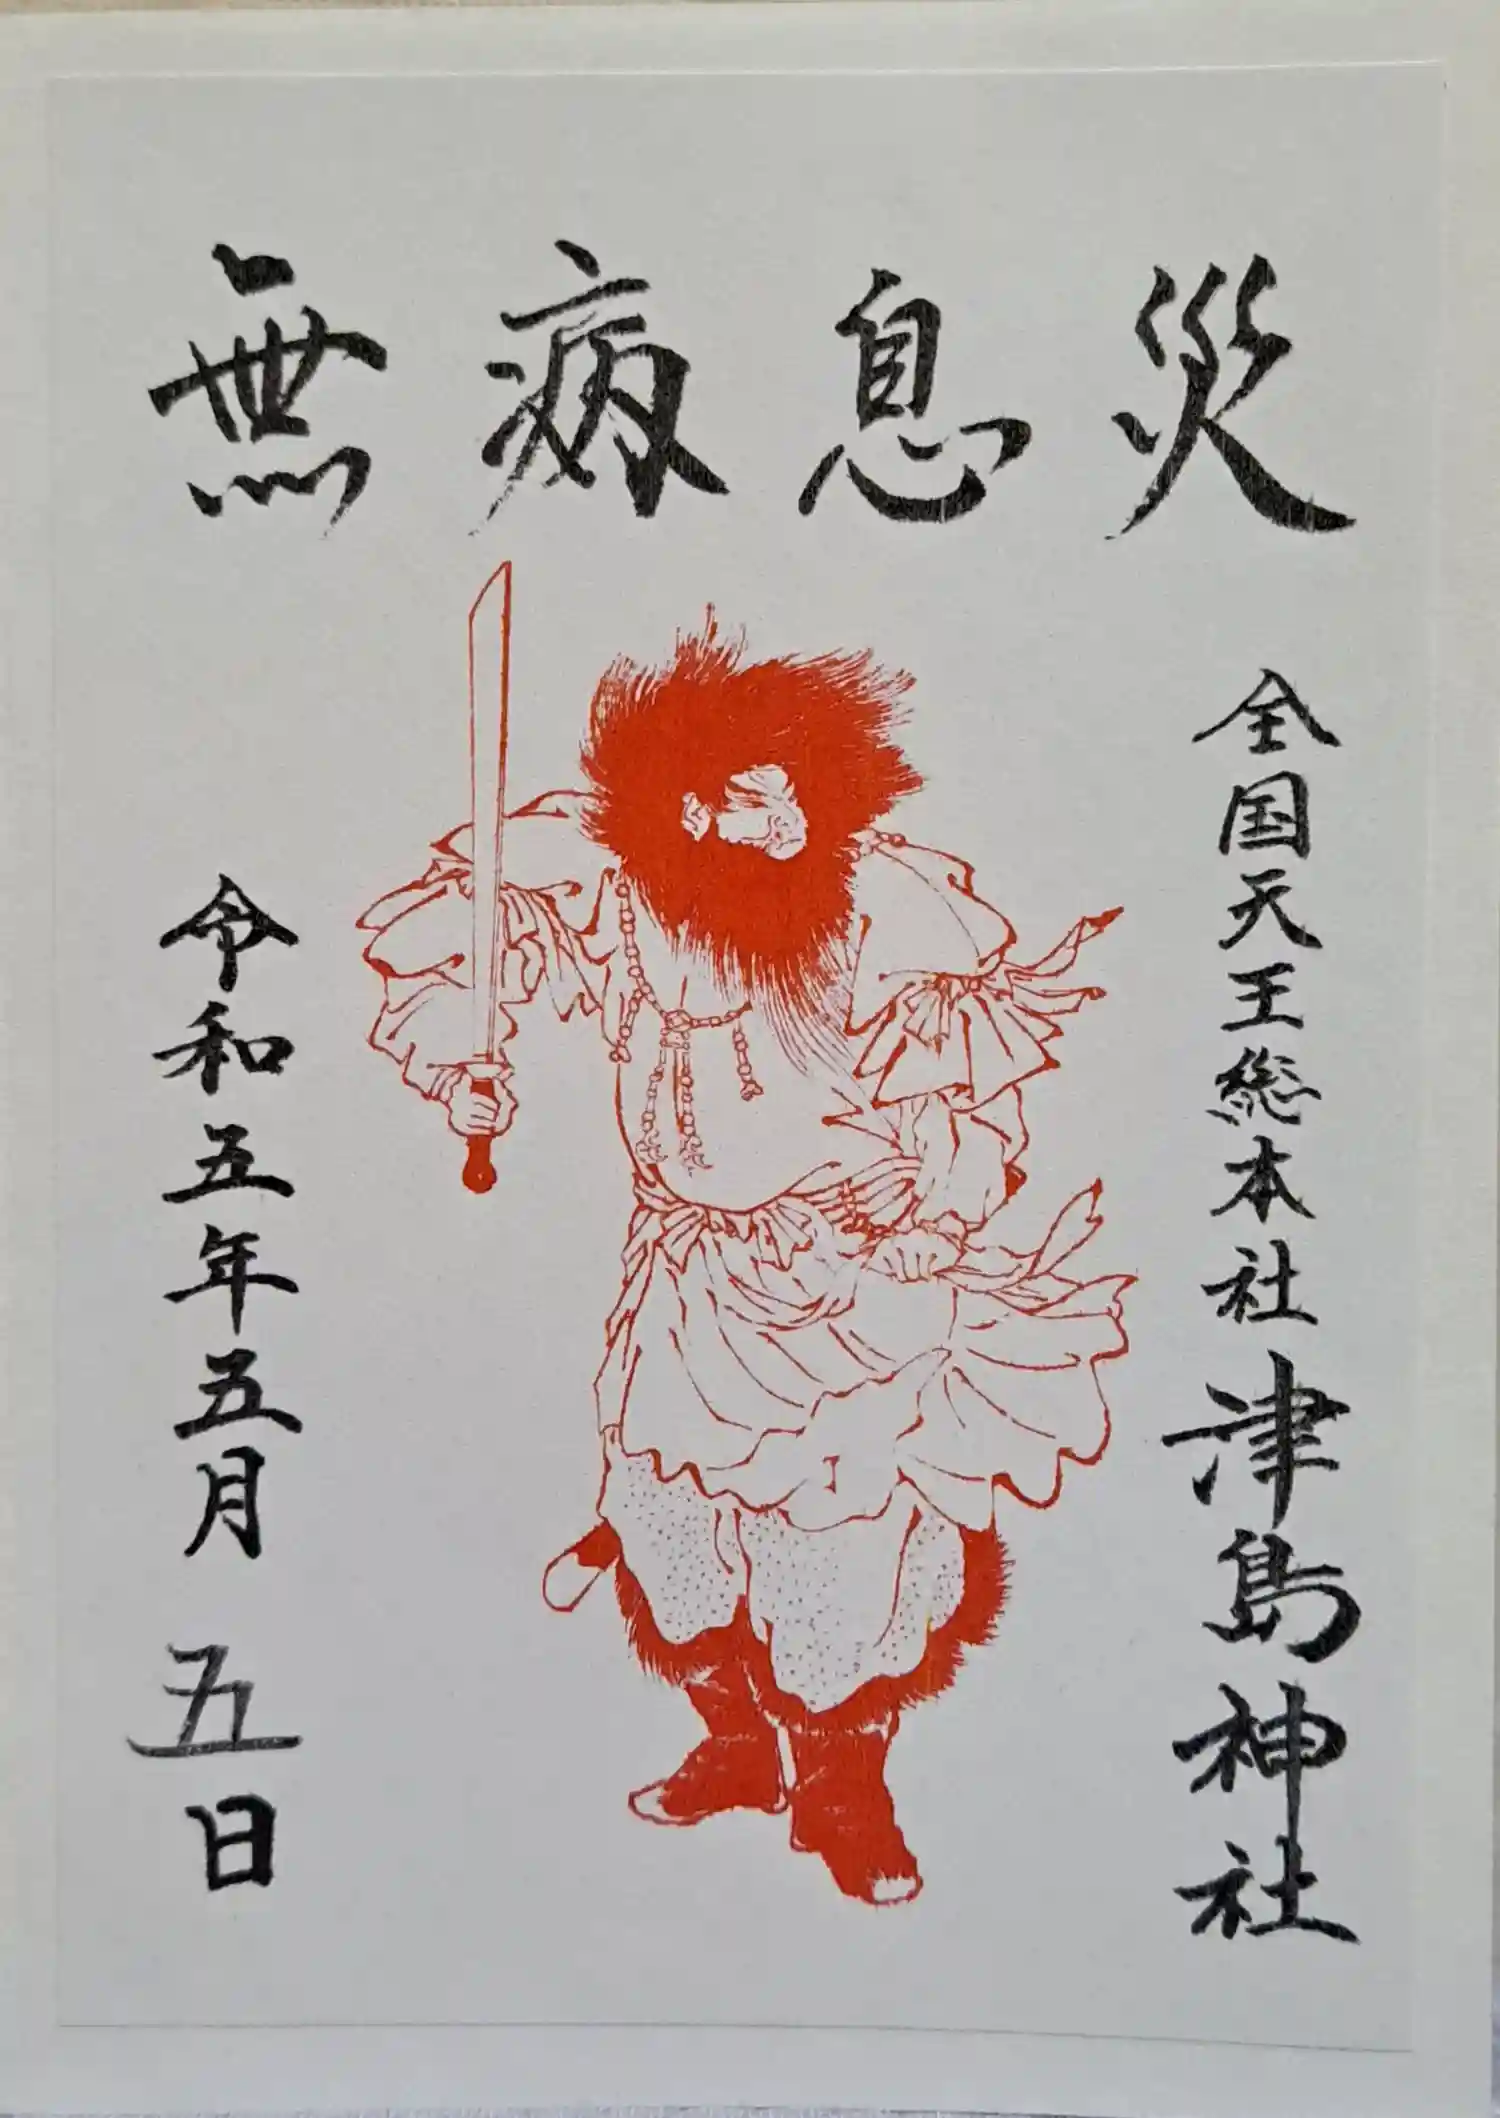 無病息災
全国天王総本社津島神社
令和五年五月五日